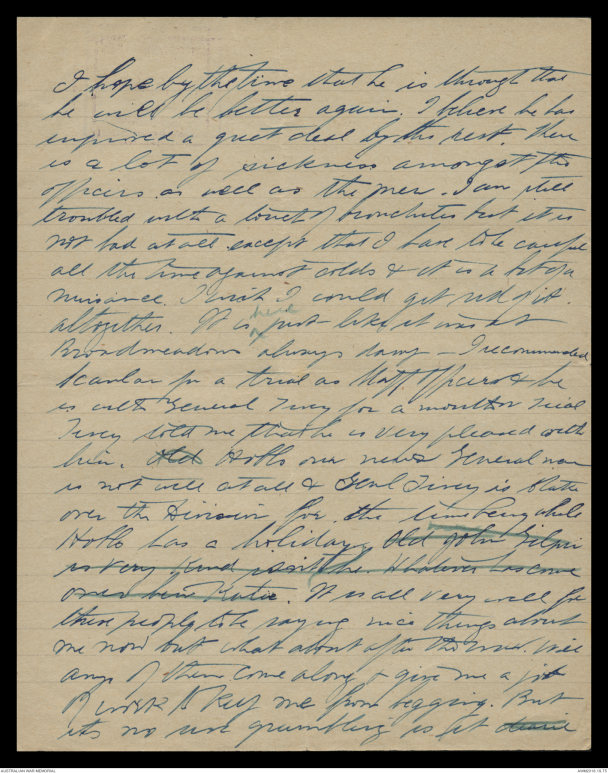 I hope by the time that he is through that
he will be better again. I believe he has
improved a great deal by this rest. There
is a lot of sickness amongst the
officers as well as the men. I am still
troubled with a touch of bronchitis but it is
not bad at all except that I have to be careful
all the time against colds & it is a bit of a
nuisance. I wish I could get rid of it
altogether. It is here just like it was at
Broadmeadows always damp - I recommended
Scanlan for a trial as Staff Officer & he
is with General Tivey for a months trial
Tivey told me that he is very pleased with
him. Old Hobbs our new General now
is not well at all & Genl Tivey is
over the Division for the time being while
Hobbs has a holiday. Old John Gilpin
is very kind isn't he. Whatever has come
over him Katie. It is all very well for
these people to be saying nice things about
me now but what about after the war. Will
any of them come along & give me a job
of work to keep me from begging. But
its no use grumbling is it
AUSTRALIAN WAR MEMORIAL